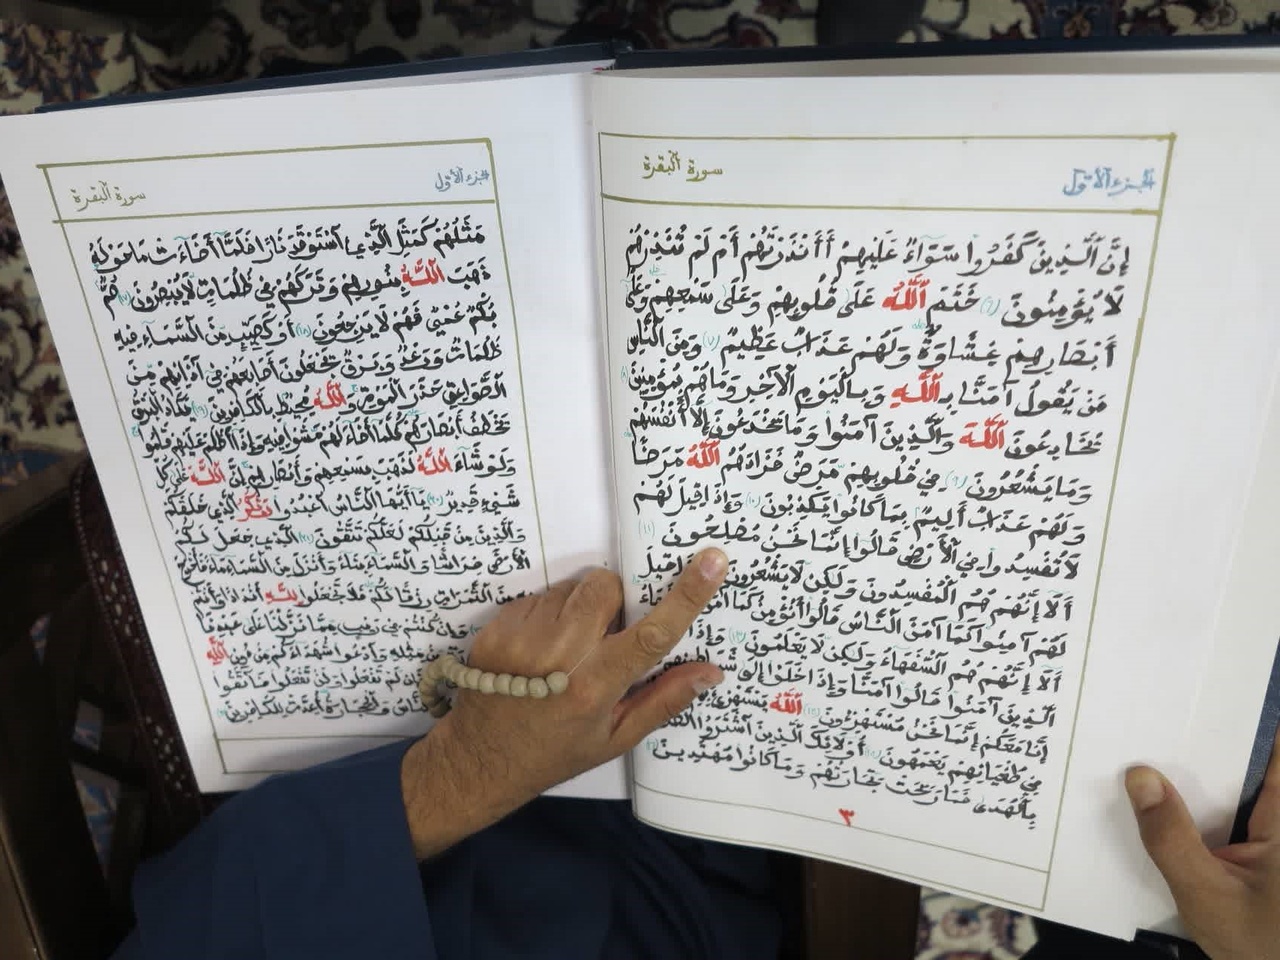 الجزء الأول
سورة البقرة
إِنَّ الَّذِينَ كَفَرُوا سَوَاءٌ عَلَيْهِمْ أَأَنْذَرْتَهُمْ أَمْ لَمْ تُنْذِرْهُمْ
لَا يُؤْمِنُونَ (٦) خَتَمَ اللَّهُ عَلَى قُلُوبِهِمْ وَعَلَى سَمْعِهِمْ وَعَلَى
أَبْصَارِهِمْ غِشَاوَةٌ وَلَهُمْ عَذَابٌ عَظِيمٌ (٧) وَمِنَ النَّاسِ
مَنْ يَقُولُ آمَنَّا بِاللَّهِ وَبِالْيَوْمِ الْآخِرِ وَمَا هُمْ بِمُؤْمِنِينَ (٨)
يُخَادِعُونَ اللَّهَ وَالَّذِينَ آمَنُوا وَمَا يَخْدَعُونَ إِلَّا أَنْفُسَهُمْ
وَمَا يَشْعُرُونَ (٩) فِي قُلُوبِهِمْ مَرَضٌ فَزَادَهُمُ اللَّهُ مَرَضًا
وَلَهُمْ عَذَابٌ أَلِيمٌ بِمَا كَانُوا يَكْذِبُونَ (١٠) وَإِذَا قِيلَ لَهُمْ
لَا تُفْسِدُوا فِي الْأَرْضِ قَالُوا إِنَّمَا نَحْنُ مُصْلِحُونَ (١١)
أَلَا إِنَّهُمْ هُمُ الْمُفْسِدُونَ وَلَكِنْ لَا يَشْعُرُونَ قِيلَ
لَهُمْ آمِنُوا كَمَا آمَنَ النَّاسُ قَالُوا أَنُؤْمِنُ كَمَا
أَلَا إِنَّهُمْ هُمُ السُّفَهَاءُ وَلَكِنْ لَا يَعْلَمُونَ (١٣) وَإِذَا
الَّذِينَ آمَنُوا قَالُوا آمَنَّا وَإِذَا خَلَوْا إِلَى
إِنَّا مَعَكُمْ إِنَّمَا نَحْنُ مُسْتَهْزِئُونَ (١٤) اللَّهُ يَسْتَهْزِئُ
فِي طُغْيَانِهِمْ يَعْمَهُونَ (١٥) أُولَئِكَ الَّذِينَ اشْتَرَوُا
بِالْهُدَى فَمَا رَبِحَتْ تِجَارَتُهُمْ وَمَا كَانُوا مُهْتَدِينَ (١٦)
٣
الجزء الأول
سورة البقرة
مَثَلُهُمْ كَمَثَلِ الَّذِي اسْتَوْقَدَ نَارًا فَلَمَّا أَضَاءَتْ مَا حَوْلَهُ
ذَهَبَ اللَّهُ بِنُورِهِمْ وَتَرَكَهُمْ فِي ظُلُمَاتٍ لَا يُبْصِرُونَ (١٧) صُمٌّ
بُكْمٌ عُمْيٌ فَهُمْ لَا يَرْجِعُونَ (١٨) أَوْ كَصَيِّبٍ مِنَ السَّمَاءِ فِيهِ
ظُلُمَاتٌ وَرَعْدٌ وَبَرْقٌ يَجْعَلُونَ أَصَابِعَهُمْ فِي آذَانِهِمْ مِنَ
الصَّوَاعِقِ حَذَرَ الْمَوْتِ وَاللَّهُ مُحِيطٌ بِالْكَافِرِينَ (١٩) يَكَادُ الْبَرْقُ
يَخْطَفُ أَبْصَارَهُمْ كُلَّمَا أَضَاءَ لَهُمْ مَشَوْا فِيهِ وَإِذَا أَظْلَمَ عَلَيْهِمْ قَامُوا
وَلَوْ شَاءَ اللَّهُ لَذَهَبَ بِسَمْعِهِمْ وَأَبْصَارِهِمْ إِنَّ اللَّهَ عَلَى كُلِّ
شَيْءٍ قَدِيرٌ (٢٠) يَا أَيُّهَا النَّاسُ اعْبُدُوا رَبَّكُمُ الَّذِي خَلَقَكُمْ
وَالَّذِينَ مِنْ قَبْلِكُمْ لَعَلَّكُمْ تَتَّقُونَ (٢١) الَّذِي جَعَلَ لَكُمُ
الْأَرْضَ فِرَاشًا وَالسَّمَاءَ بِنَاءً وَأَنْزَلَ مِنَ السَّمَاءِ مَاءً فَأَخْرَجَ
بِهِ مِنَ الثَّمَرَاتِ رِزْقًا لَكُمْ فَلَا تَجْعَلُوا لِلَّهِ أَنْدَادًا وَأَنْتُمْ
وَإِنْ كُنْتُمْ فِي رَيْبٍ مِمَّا نَزَّلْنَا عَلَى عَبْدِنَا
مِنْ مِثْلِهِ وَادْعُوا شُهَدَاءَكُمْ مِنْ دُونِ اللَّهِ
لَمْ تَفْعَلُوا وَلَنْ تَفْعَلُوا فَاتَّقُوا
وَالْحِجَارَةُ أُعِدَّتْ لِلْكَافِرِينَ